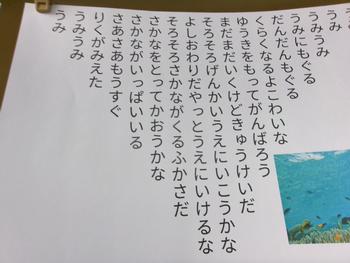 うみ
うみうみ
うみにもぐる
だんだんもぐる
くらくなるよこわいな
ゆうきをもってがんばろう
まだまだいくけどきゅうけいだ
そろそろげんかいうえにいこうかな
よしおわりだやっとうえにいけるな
そろそろさかながくるふかさだ
さかなをとってかおうかな
さかながいっぱいいる
さあさあもうすぐ
りくがみえた
うみうみ
うみ